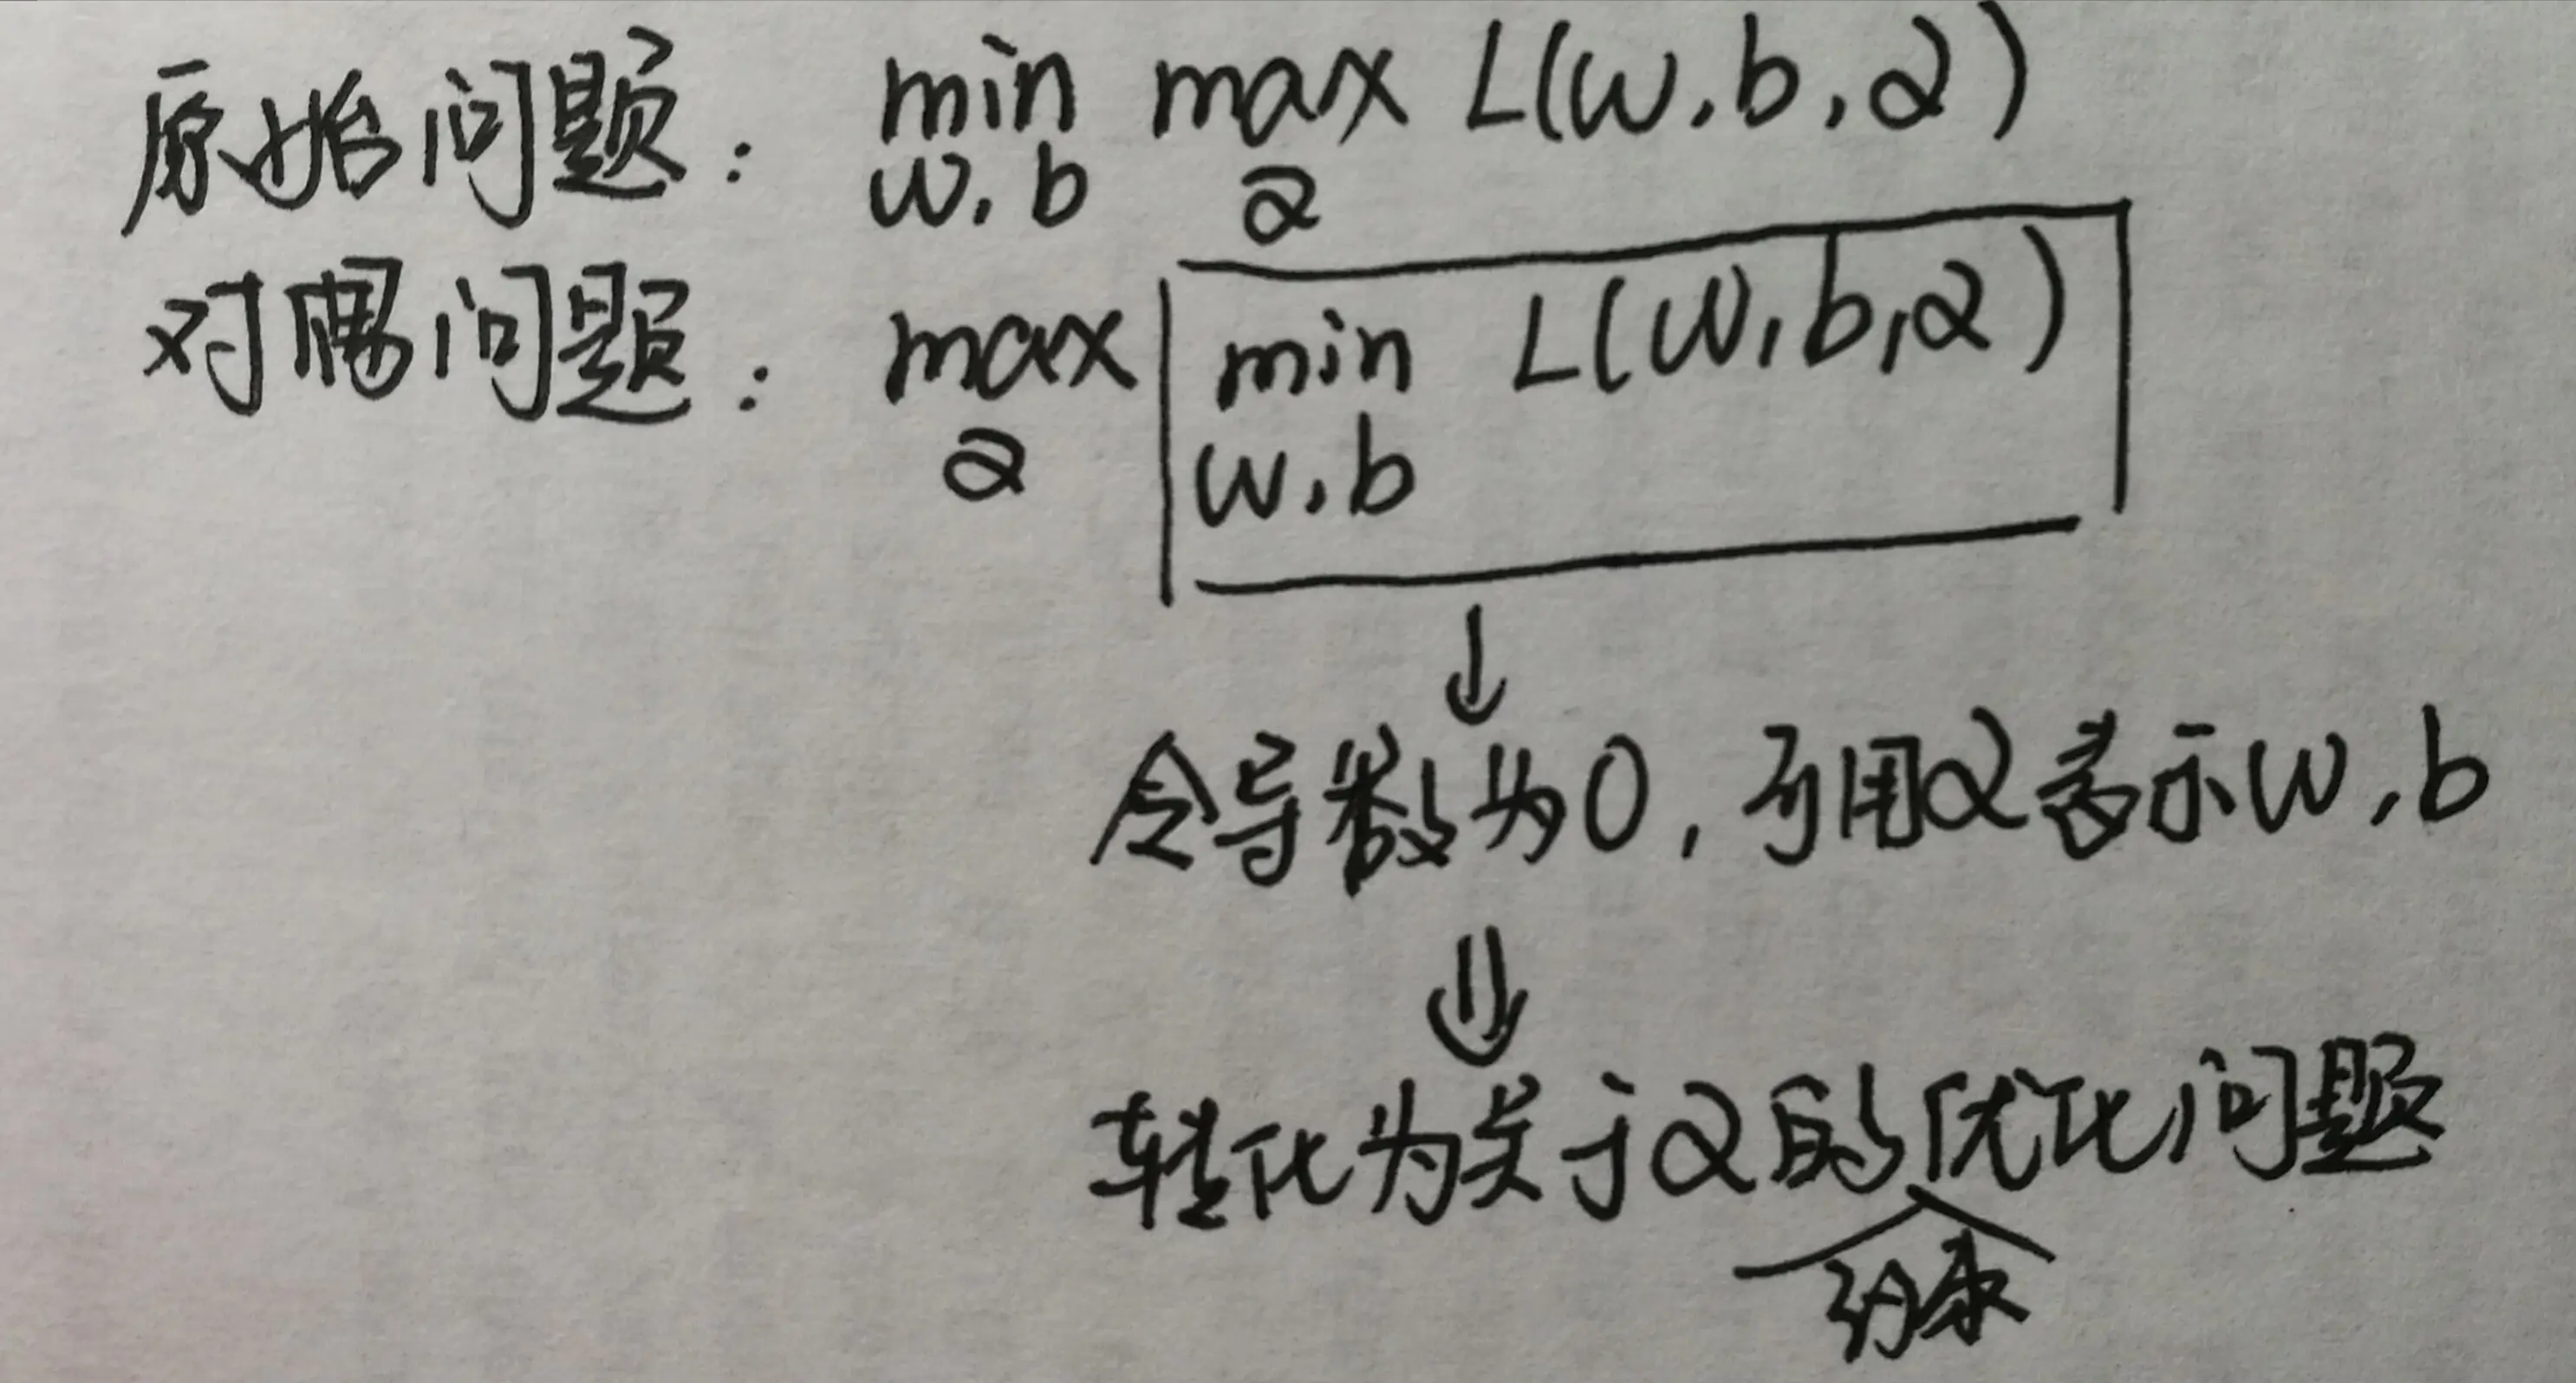 原始问题： min max L(w,b,α)
w,b α
对偶问题： max min L(w,b,α)
α w,b
令导数为0，可用α表示w,b
转化为关于α的优化问题
约束